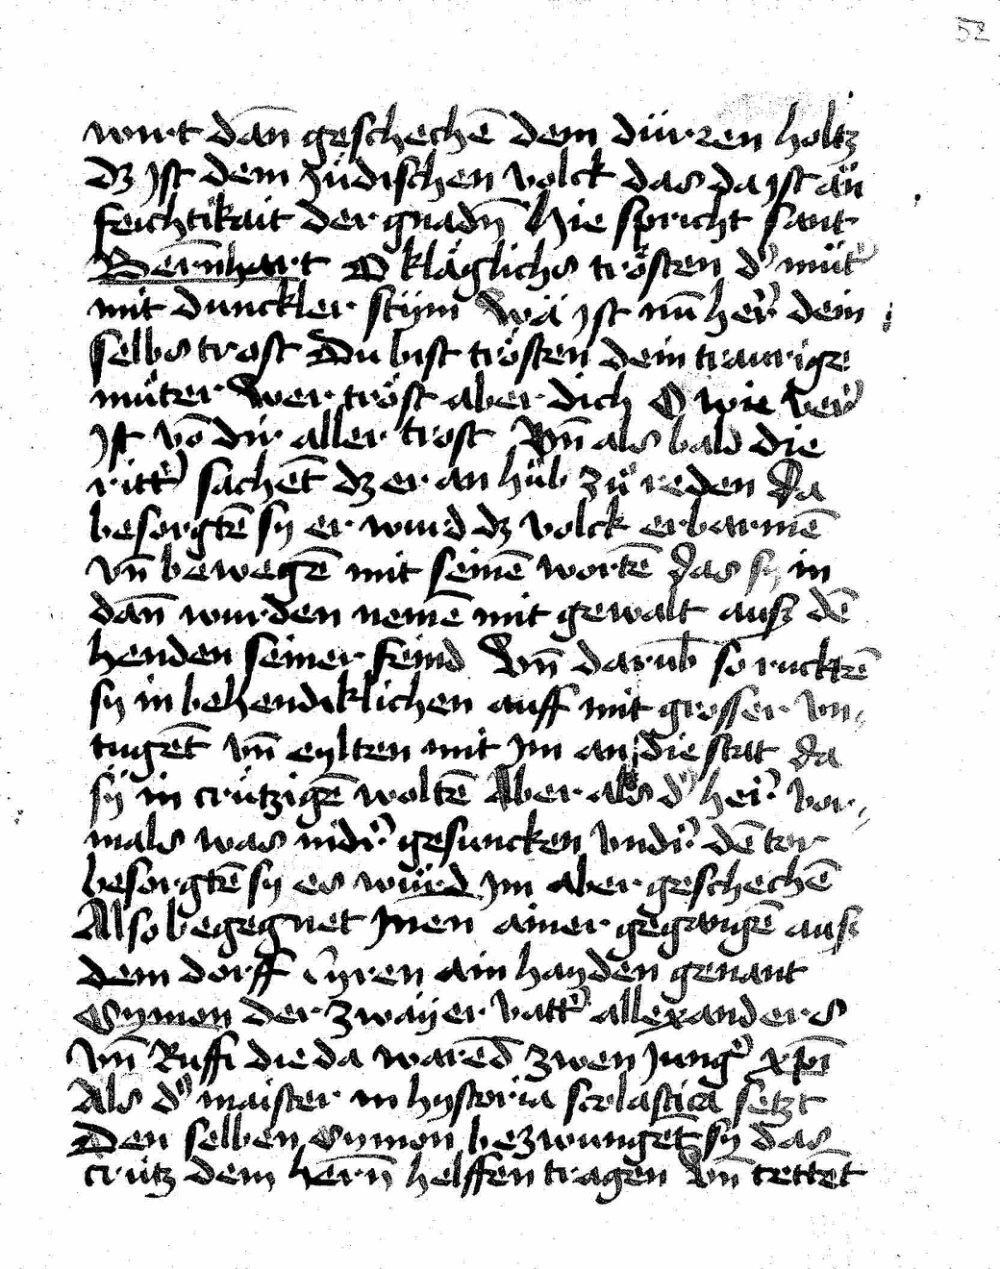 52
wirt dañ geschechē dem dürren holtz
dz ist dem Jüdischen volck das da ist än
feichtikait der gnadn̄ Hie spricht sant
Bern̄hart O kläglichs trösten d' mut'
mit dunckler stijm Wä ist nū her' dein
selbs trost Du bist trösten dein traurige
müter Wer tröst aber dich O wie ver'
Jst vō dir aller trost Vn̄ als bald die
ritt' sachēt dz er an hüb zů reden Da
besorgtē sÿ er wurd dz volck erbarmē
vn̄ bewegē mit seinē wortē das sÿ in
dañ wurden nemē mit gewalt ausz dē
henden seiner feind Vn̄ darub̄ so rucktē
sÿ in behendiklichen auff mit grosser vn
tugēt vn̄ eylten mit Jm an die stat da
sÿ in crützigē woltē Aber als d' her' vor
mals was nidr' gesuncken vndr' dē tor
besorgtē sÿ es würd Jm aber geschechē
Also begegnet Jnen ainer gegangē ausz
dem dorff Cyren ain hayden genant
Symon der zwaÿer vatt' allexanders
vn̄ Ruffi die da warēd zwen Jung' xpī
Als d' maister in hystoria scolastica setzt
Den selben Symon bezwungēt sÿ das
crütz dem hern̄ helffen tragen Vn̄ tettēt